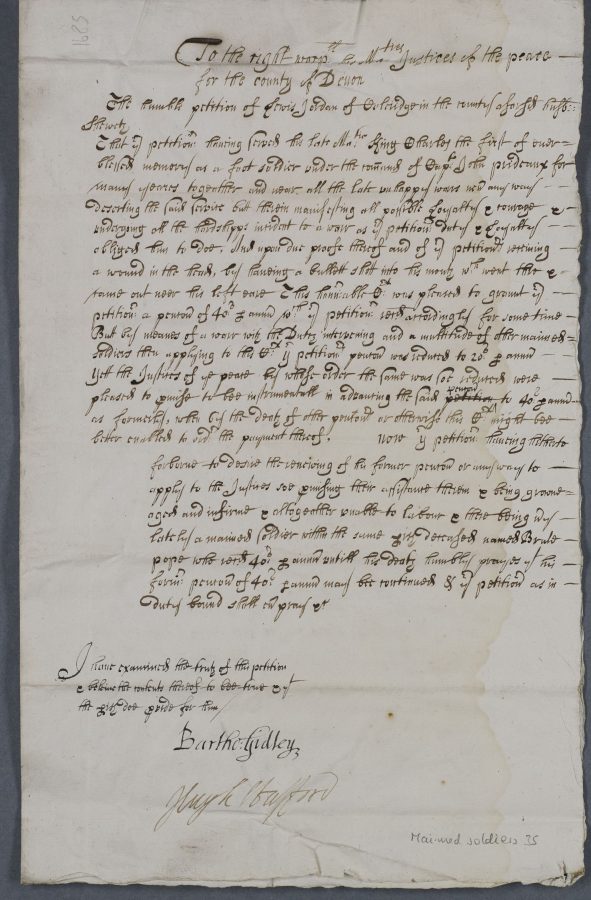 1685
To the right worpll his Maties Justices of the peace
for the county of Devon
The humble petition of Lewis Jordan of in the county aforesaid husb:
Sheweth
That yr petitionr haveing served his late Matie King Charles the first of ever
blessed memory as a foot soldier under the comand of Capt John prideaux for
many yeares togeather and neare all the late unhappy wars now any ways
deserting the said service but therein manifesting all possible Loyalty & courage &
undergoeing all the hardshipps incident to a warr as yr petitionrs duty & Loyalty
obliged him to doe. And upon due proofe thereof and of yr petitionrs receiving
a wound in the head, by haveing a bullett shot into his mouth wch went thr &
came out neer his left eare This honourable Ct was pleased to graunt yr
petitionr a pencon of 40s p annu wch yr petitionr recd accordingly for some time
But by meanes of a warr with the Dutch intervening and a multitude of other maimed
soldiers then applying to this Ct yr petitionrs pencon was reduced to 20s p annu
Yett the Justices of ye peace by whose order the same was soe reduced were
pleased to pmise to bee instrumentall in advancing the said petition pencon to 40s p annu
as formerly, when by the death of other pentionrs or otherwise this Ct might bee
better enabled to ordr the payment thereof. Now yr petitionr haveing hitherto
forborne to desire the renewing of his former pencon or any ways to
apply to the Justices soe pmising their assistance therein & being growne
aged and infirme & altogeather unable to labour & there being
lately a maimed soldier within the same pish deceased named
pope who recd 40s p annu untill his death humbly prayes yt his
formr pencon of 40s p annu may bee continued & yr petitionr as in
duty bound shall evr pray &c
I have examined the truth of this petition
& beleive the contents thereof to bee true & yt
the pish doe pvide for him
Bartho: Gidley
Hugh Stafford
Maimed soldiers 35